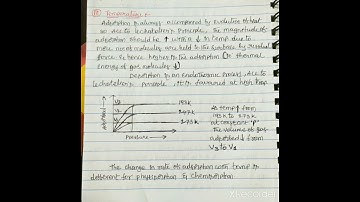 Temperature :-
Adsorption is always accompanied by evolution of heat
so acc to Lechatlier's Principle, the magnitude of
adsorption should ↑ with ↓ in temp due to
more no. of molecules are held to the surface by residual
force & hence higher is the adsorption (∵ thermal
energy of gas molecules ↓)
Desorption is an Endothermic process, Acc to
Lechatlier's principle, it is favoured at high temp
V3 193k
V2 247k
V1 273k
Adsorption
Pressure
As temp ↑ from
193k to 273k
at constant 'P'
the volume of gas
adsorbed ↓ from
V3 to V1
The change in rate of adsorption with temp is
different for physisorption & chemisorption